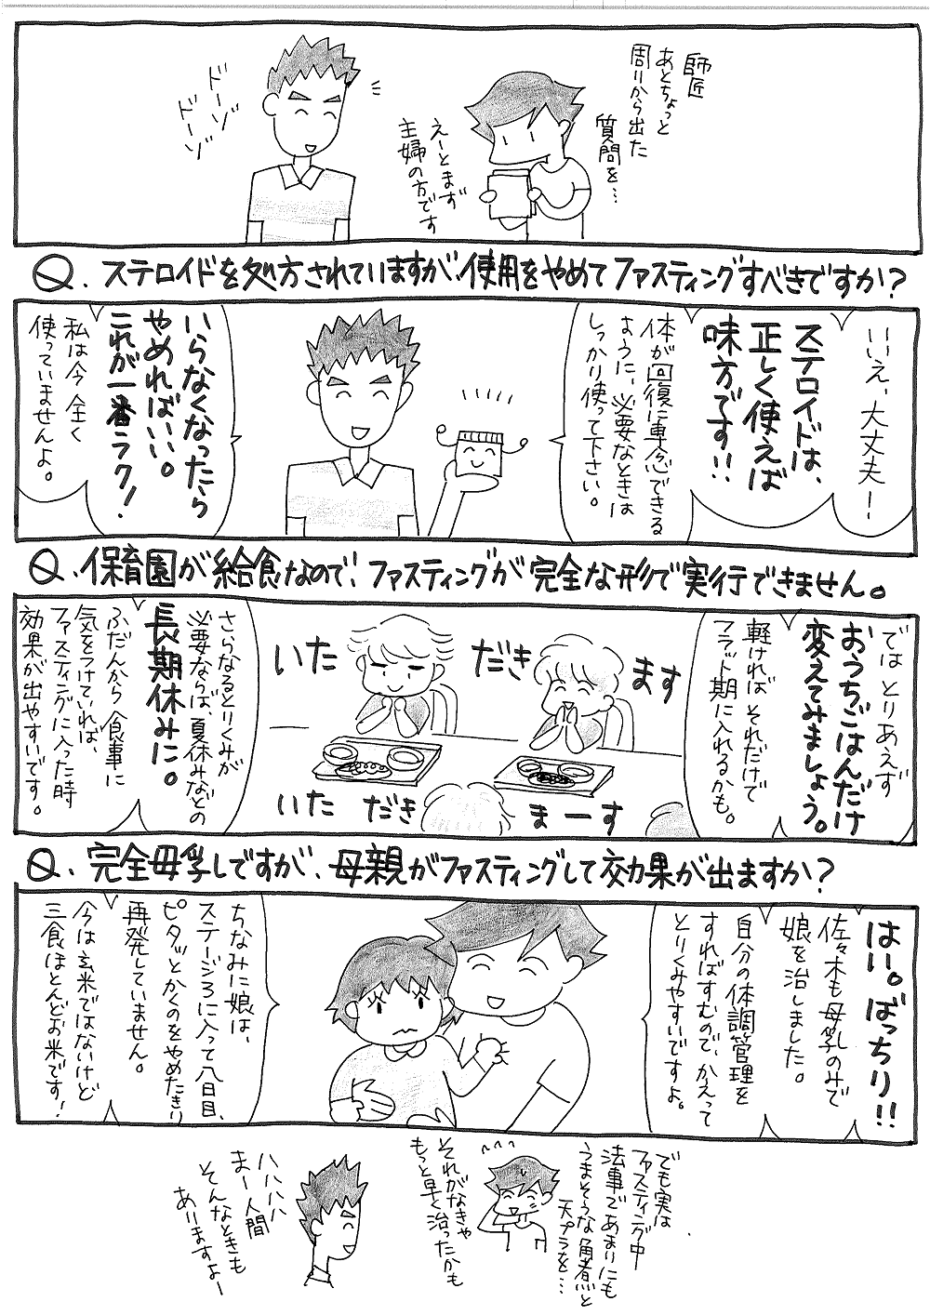 師匠
あとちょっと
周りから出た
質問を…
えーとまず
主婦の方です
ドーゾ
ドーゾ
Q.ステロイドを処方されていますが、使用をやめてファスティングすべきですか?
いいえ、大丈夫ー
ステロイドは、
正しく使えば
味方です!!
体が回復に専念できる
ように、必要なときは
しっかり使って下さい。
いらなくなったら
やめればいい。
これが一番ラク!
私は今全く
使っていませんよ。
Q.保育園が給食なので、ファスティングが完全な形で実行できません。
では とりあえず
おうちごはんだけ
変えてみましょう。
軽ければそれだけで
フラット期に入れるかも。
いた だき ます
いた だき まーす
さらなるとりくみが
必要ならば、夏休みなどの
長期休みに。
ふだんから食事に
気をつけていれば、
ファスティングに入った時
効果が出やすいです。
Q.完全母乳ですが、母親がファスティングして効果が出ますか?
はい。ばっちり!!
佐々木も母乳のみで
娘を治しました。
自分の体調管理を
すればすむので、かえって
とりくみやすいですよ。
ちなみに娘は、
ステージ3に入って八日目、
ピタッとかくのをやめたきり
再発していません。
今は玄米ではないけど
三食ほとんどお米です!
でも実は
ファスティング中
法事であまりにも
うまそうな角煮と
天プラを…
それがなきゃ
もっと早く治ったかも
ハハハハ
まー人間
そんなときも
ありますよー